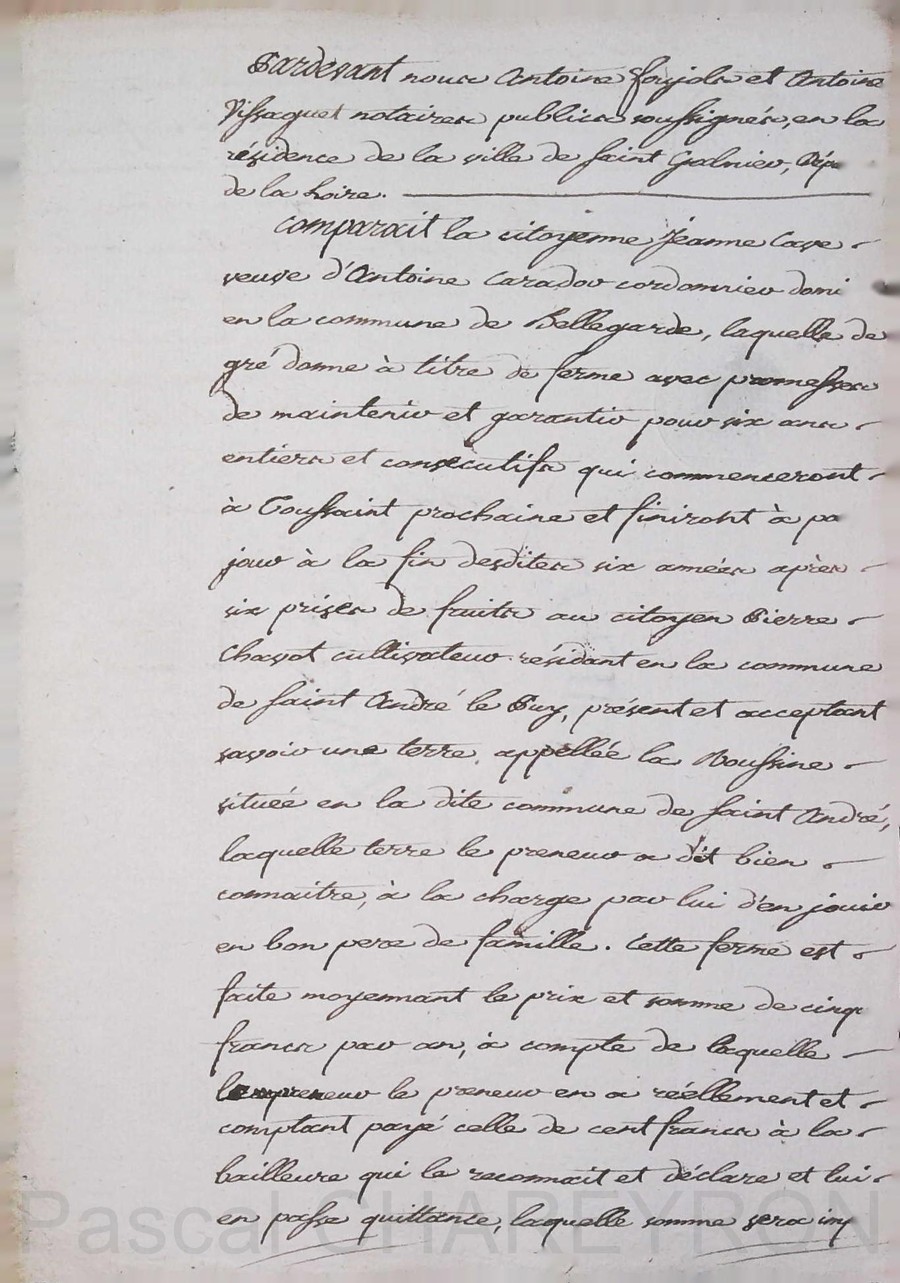 Pardevant nous Antoine foujols et Antoine
Vissaguet notaires publics soussignés, en la
résidence de la ville de Saint Galmier, Dép
de la Loire.
Comparait la citoyenne Jeanne Cave
veuve d'Antoine Carador cordonnier domi
en la commune de Bellegarde, laquelle de
gré donne à titre de ferme avec promesses
de maintenir et garantir pour six ans
entiers et consécutifs qui commenceront
à Toussaint prochaine et finiront à pa
jour à la fin desdites six années après
six prises de fruits au citoyen Pierre
Chavot cultivateur résidant en la commune
de Saint André le Puy, présent et acceptant
savoir une terre, appellée la Roussine
située en la dite commune de Saint André,
laquelle terre le preneur a dit bien
connaitre, à la charge par lui d'en jouir
en bon pere de famille. Cette ferme est
faite moyennant le prix et somme de cinq
francs par an, à compte de laquelle
le preneur en a réellement et
comptant payé celle de cent francs à la
bailleure qui le reconnait et déclare et lui
en passe quittance, laquelle somme sera imp
Pascal CHAREYRON